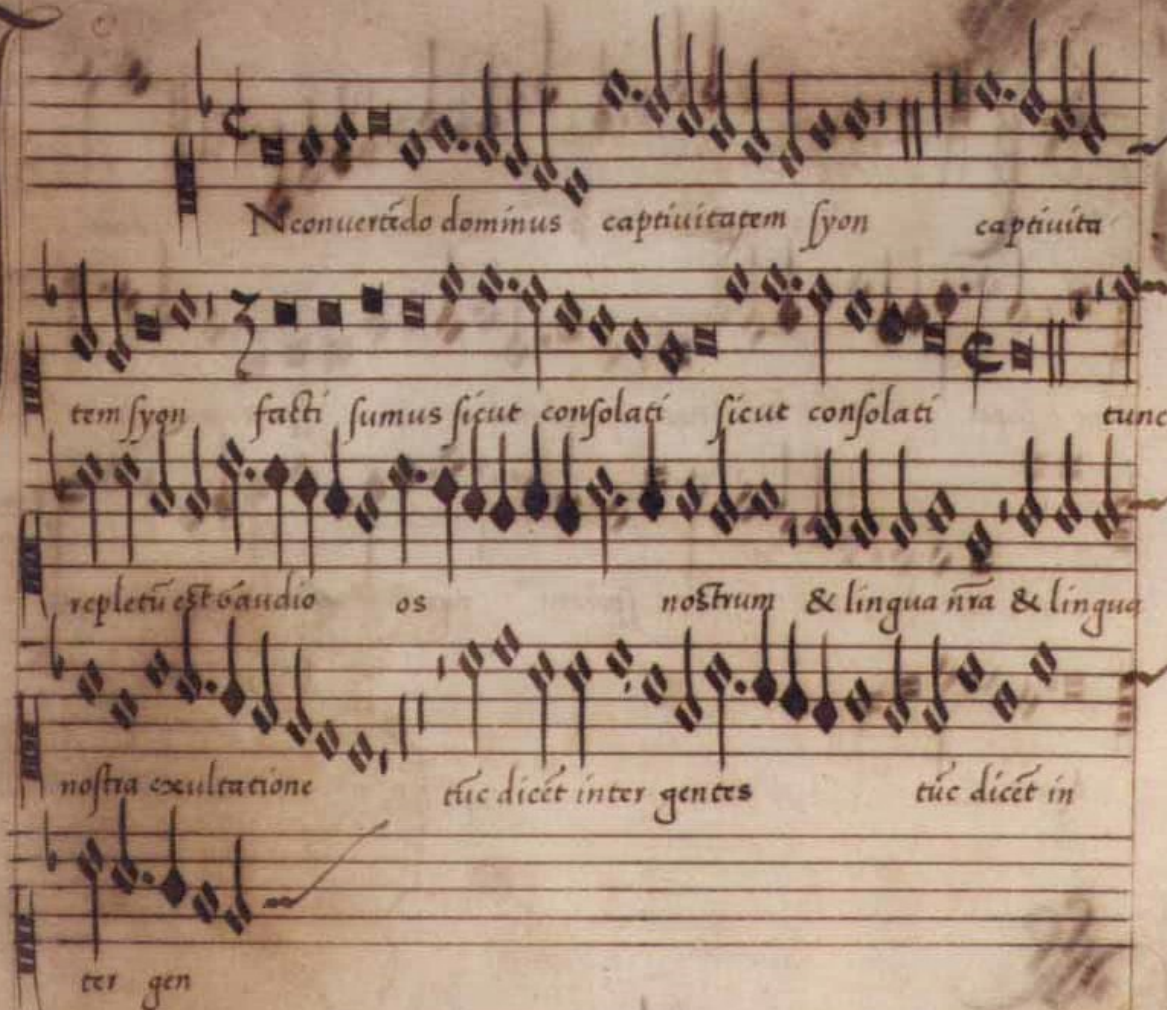 N conuertēdo dominus captiuitatem ſyon captiuita
tem ſyon facti ſumus ſicut conſolati ſicut conſolati tunc
repletū est gaudio os nostrum & lingua nr̄a & lingua
noſtra exultatione tūc dicēt inter gentes tūc dicēt in
ter gen